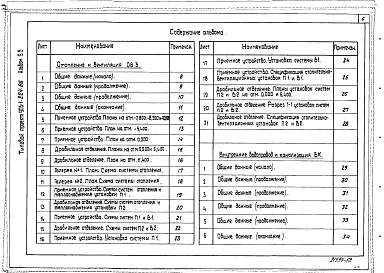 6
Содержание альбома.
Лист Наименование Примечан.
Отопление и вентиляция ОВ 3.
1 Общие данные (начало). 8
2 Общие данные (продолжение). 9
3 Общие данные (продолжение). 10
4 Общие данные (окончание). 11
5 Приемное устройство. Планы на отм. 12
6 Приемное устройство. План на отм. 13
7 Приемное устройство. План на отм. 0.000. 14
8 Дробильное отделение. Планы на отм. 0.000, 6.400. 15
9 Дробильное отделение. План на отм. 16
10 Галерея №1. План. Схема системы отопления. 17
11 Галерея №2. План. Схема системы отопления. 18
12 Приемное устройство. Схемы систем отопления и теплоснабжения установки П1. 19
13 Дробильное отделение. Схемы систем отопления и теплоснабжения установки П2. 20
14 Приемное устройство. Схемы П1 и В1. 21
15 Дробильное отделение. Схемы систем П2 и В2. 22
16 Приемное устройство. Установка системы П1. 23
Лист Наименование Примечан.
17 Приемное устройство. Установка системы В1. 24
18 Приемное устройство. Спецификация отопительно-
вентиляционных установок П1 и В1. 25
19 Дробильное отделение. Планы установок систем
П2 и В2 на отм. 0.000 и 6.400. 26
20 Дробильное отделение. Разрез 1-1 установок систем
П2 и В2. 27
21 Дробильное отделение. Спецификация отопительно-
вентиляционных установок П2 и В2. 28
Внутренние водопровод и канализация ВК.
1 Общие данные (начало). 29
2 Общие данные (продолжение). 30
3 Общие данные (продолжение). 31
4 Общие данные (продолжение). 32
5 Общие данные (продолжение). 33
6 Общие данные (окончание). 34